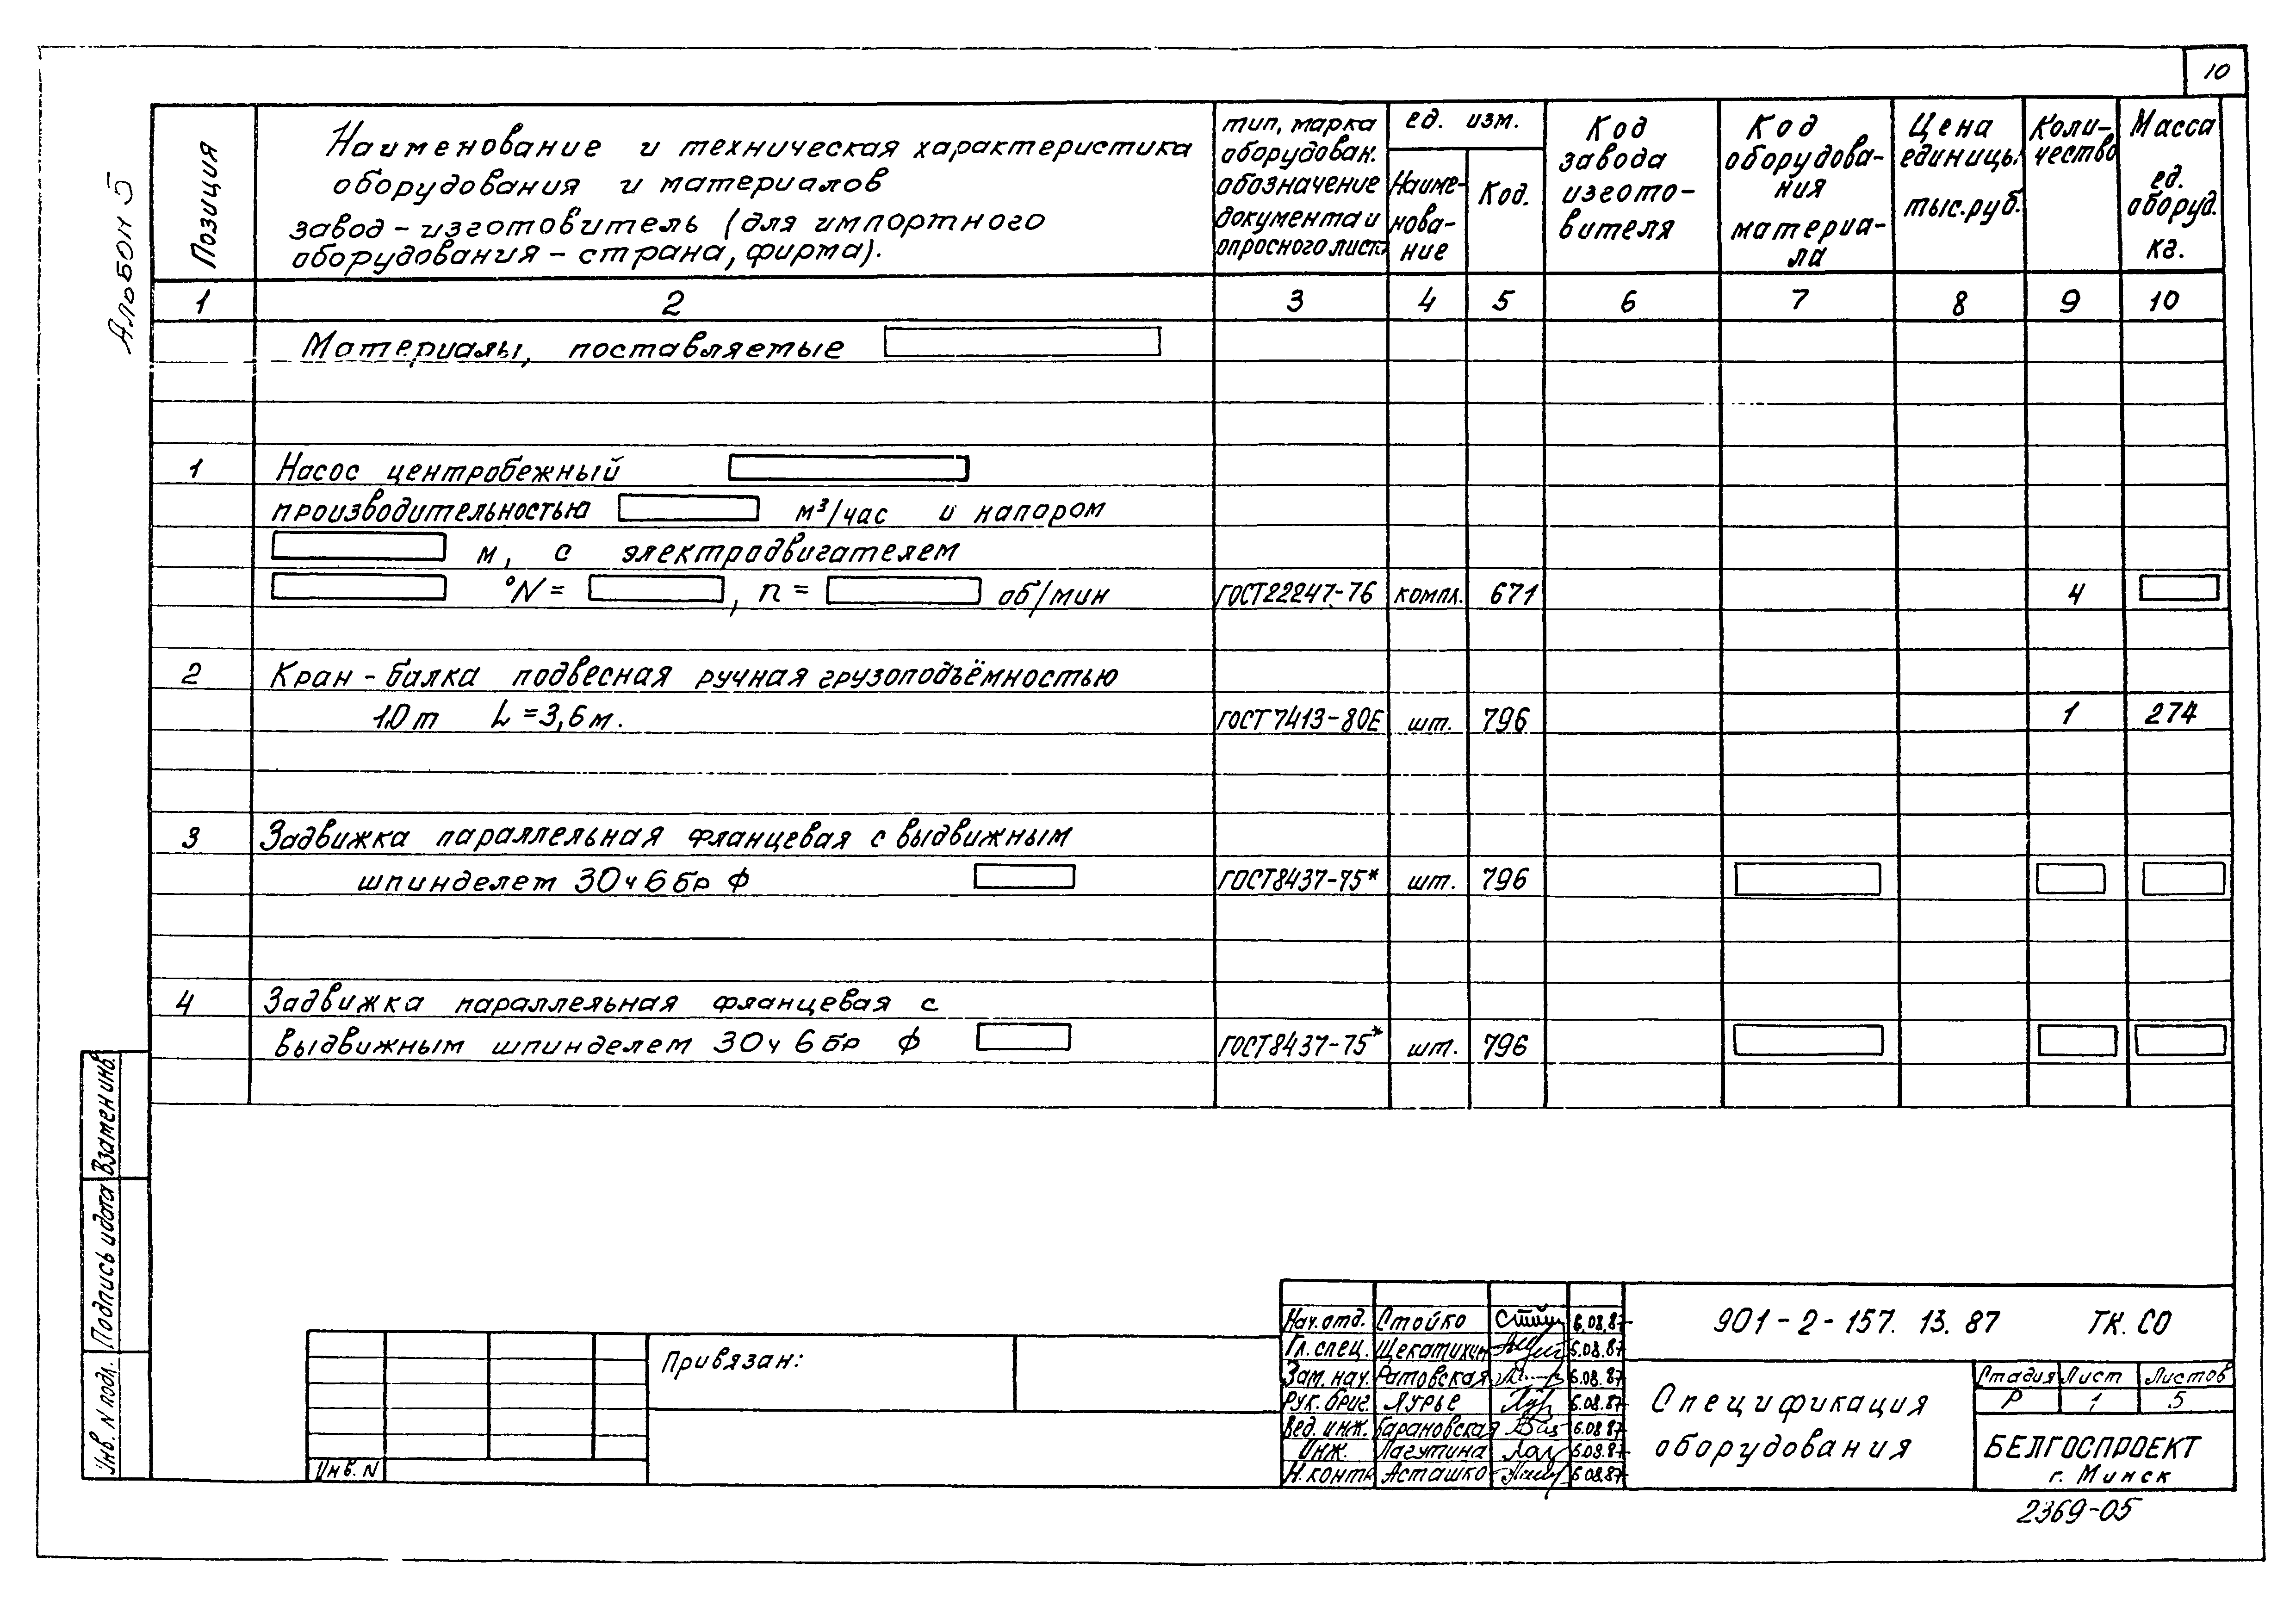 10
Альбом 5
Позиция
Наименование и техническая характеристика
оборудования и материалов
завод-изготовитель (для импортного
оборудования - страна, фирма).
тип, марка
оборудован.
обозначение
документа и
опросного листа
ед. изм.
Наиме-
нова-
ние
Код.
Код
завода
изгото-
вителя
Код
оборудова-
ния
материа-
ла
Цена
единицы.
тыс.руб.
Коли-
чество
Масса
ед.
оборуд.
кг.
1 2 3 4 5 6 7 8 9 10
Материалы, поставляемые
1 Насос центробежный
производительностью м³/час и напором
м, с электродвигателем
N = , n = об/мин ГОСТ22247-76 компл. 671 4
2 Кран-балка подвесная ручная грузоподъёмностью
1.0т L=3,6м. ГОСТ7413-80Е шт. 796 1 274
3 Задвижка параллельная фланцевая с выдвижным
шпинделет 30ч6бр ф ГОСТ8437-75* шт. 796
4 Задвижка параллельная фланцевая с
выдвижным шпинделем 30ч6бр ф ГОСТ8437-75* шт. 796
Взамен инв.
Подпись и дата
Инв. N подл.
Инв. N
Привязан:
Нач.отд. Стойко 6.08.87
Гл.спец. Щекатихин 6.08.87
Зам.нач. Ратовская 6.08.87
Рук.бриг. Лурье 6.08.87
Вед.инж. Барановская 6.08.87
Инж. Лагутина 6.08.87
Н.контр Асташко 6.08.87
901-2-157. 13. 87 ТК. СО
Спецификация
оборудования
Стадия Лист Листов
Р 1 5
БЕЛГОСПРОЕКТ
г. Минск
2369-05